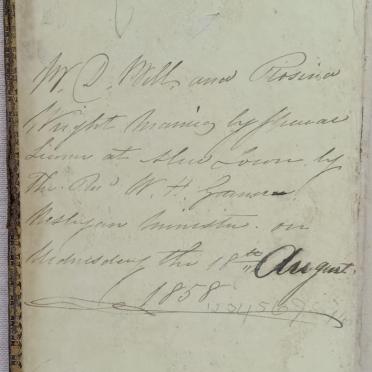 W. D. Mills and Rosina
Wright Married by special
License at by
The Revd W. H.
Wesleyan Minister on
Wednesday the 18th August
1858